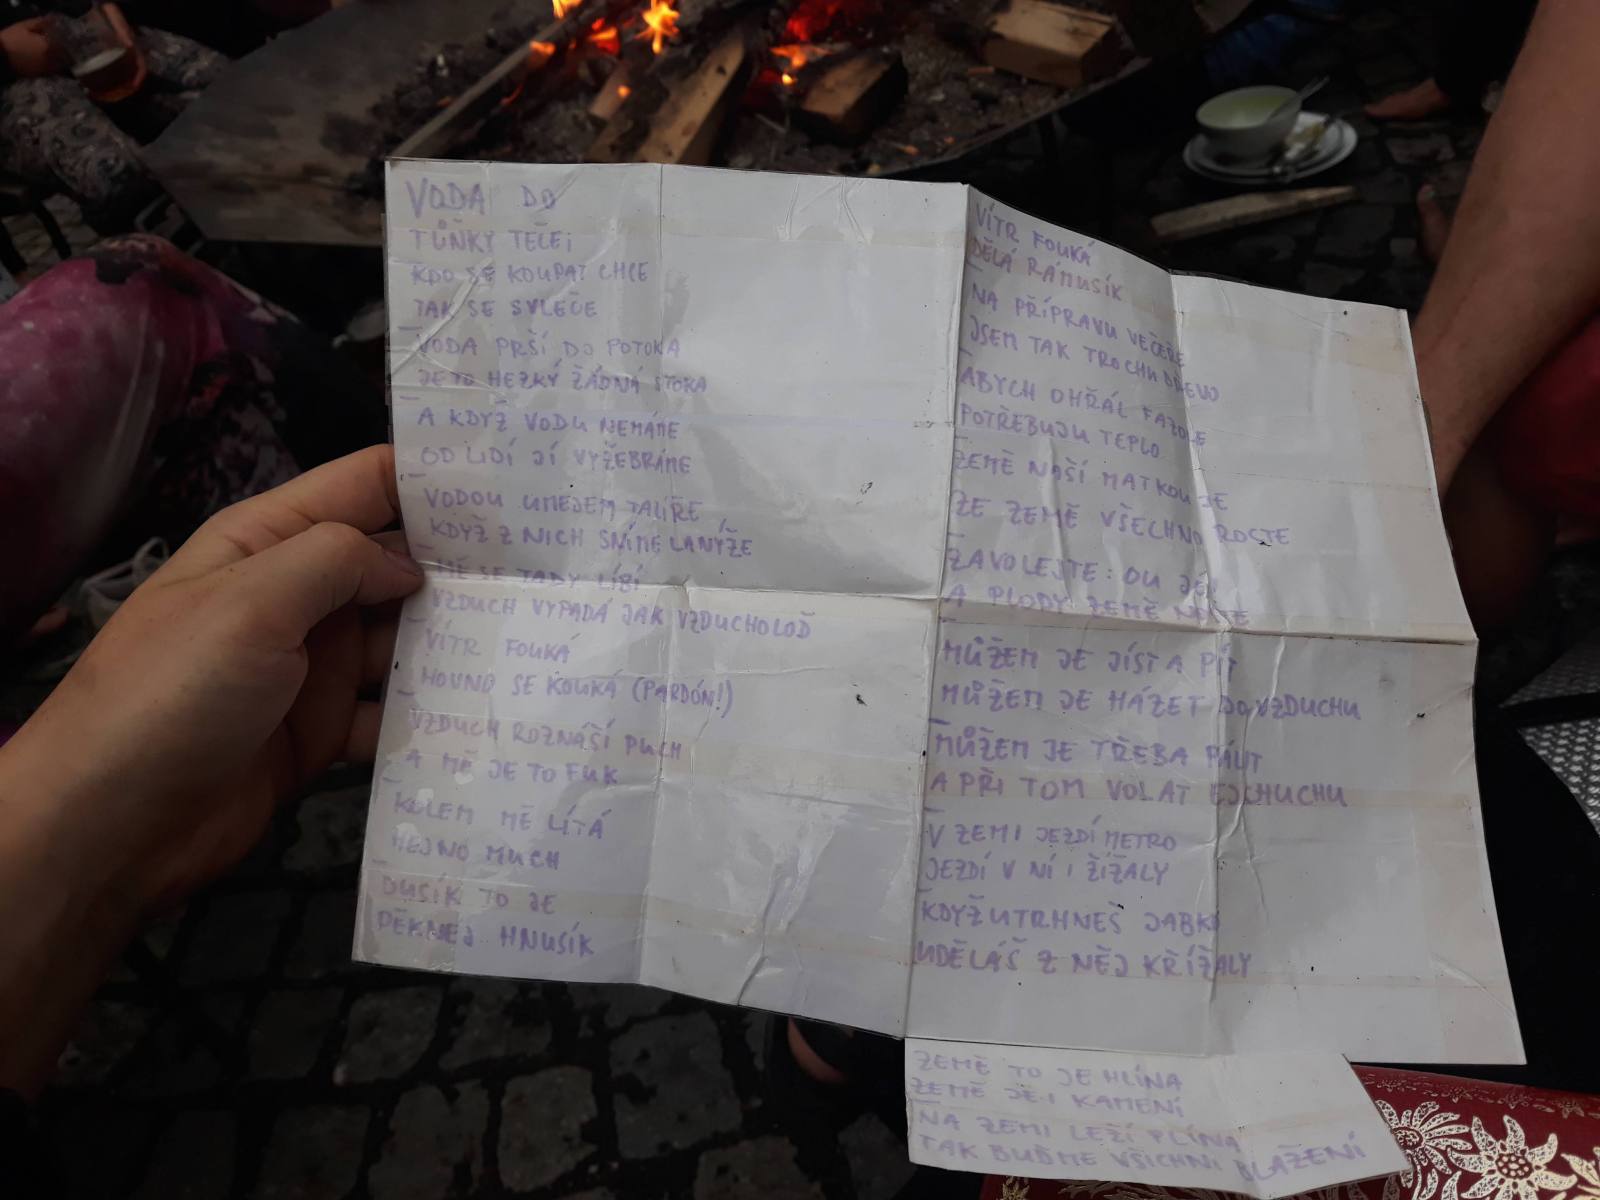 VODA DO
TŮŇKY TEČE
KDO SE KOUPAT CHCE
TAK SE SVLEČE
VODA PRŠÍ DO POTOKA
JE TO HEZKÝ ŽÁDNÁ STOKA
A KDYŽ VODU NEMÁME
OD LIDÍ JÍ VYŽEBRÁME
VODOU UMEJEM TALÍŘE
KDYŽ Z NICH SNÍME LANÝŽE
MĚ SE TADY LÍBÍ
VZDUCH VYPADÁ JAK VZDUCHOLOĎ
VÍTR FOUKÁ
HOVNO SE KOUKÁ (PARDÓN!)
VZDUCH ROZNÁŠÍ PUCH
A MĚ JE TO FUK
KOLEM MĚ LÍTÁ
HEJNO MUCH
DUSÍK TO JE
PĚKNEJ HNUSÍK
VÍTR FOUKÁ
DĚLÁ RÁMUSÍK
NA PŘÍPRAVU VEČEŘE
JSEM TAK TROCHU DŘEVO
ABYCH OHŘÁL FAZOLE
POTŘEBUJU TEPLO
ZEMĚ NAŠÍ MATKOU JE
ZE ZEMĚ VŠECHNO ROSTE
ZAVOLEJTE: OU JÉ!
A PLODY ZEMĚ NOSTE
MŮŽEM JE JÍST A PÍT
MŮŽEM JE HÁZET DO VZDUCHU
MŮŽEM JE TŘEBA PÁLIT
A PŘI TOM VOLAT EJCHUCHU
V ZEMI JEZDÍ METRO
JEZDÍ V NÍ I ŽÍŽALY
KDYŽ UTRHNEŠ JABKO
UDĚLÁŠ Z NĚJ KŘÍŽALY
ZEMĚ TO JE HLÍNA
ZEMĚ JE I KAMENÍ
NA ZEMI LEŽÍ PLÍNA
TAK BUĎME VŠICHNI BLAŽENÍ